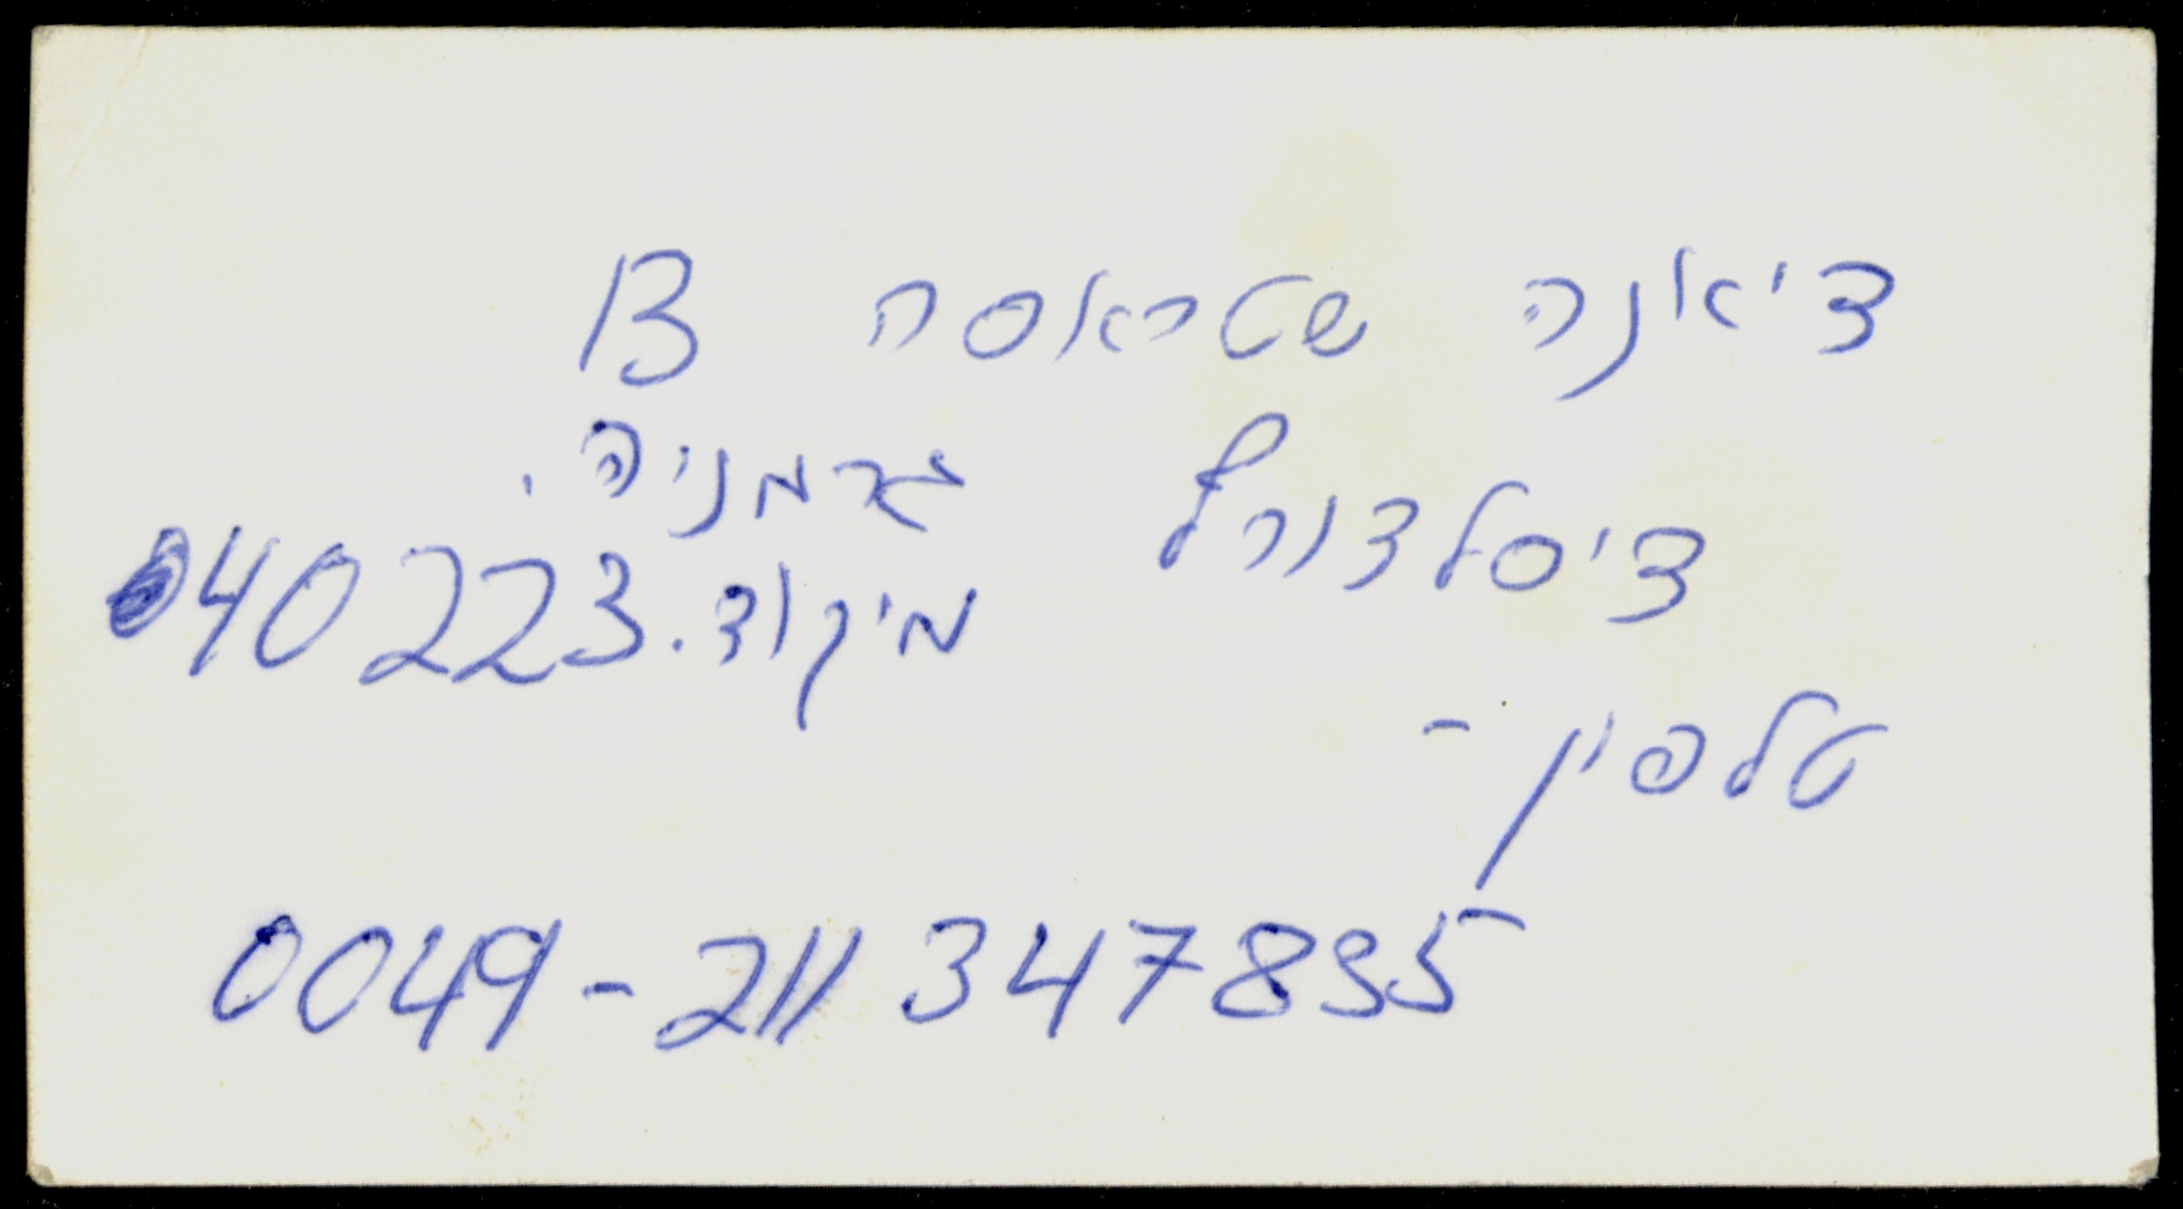 דיאנה שטראסה 13
דיסלדורף גרמניה.
מיקוד. 40223
טלפון -
0049-211 347895